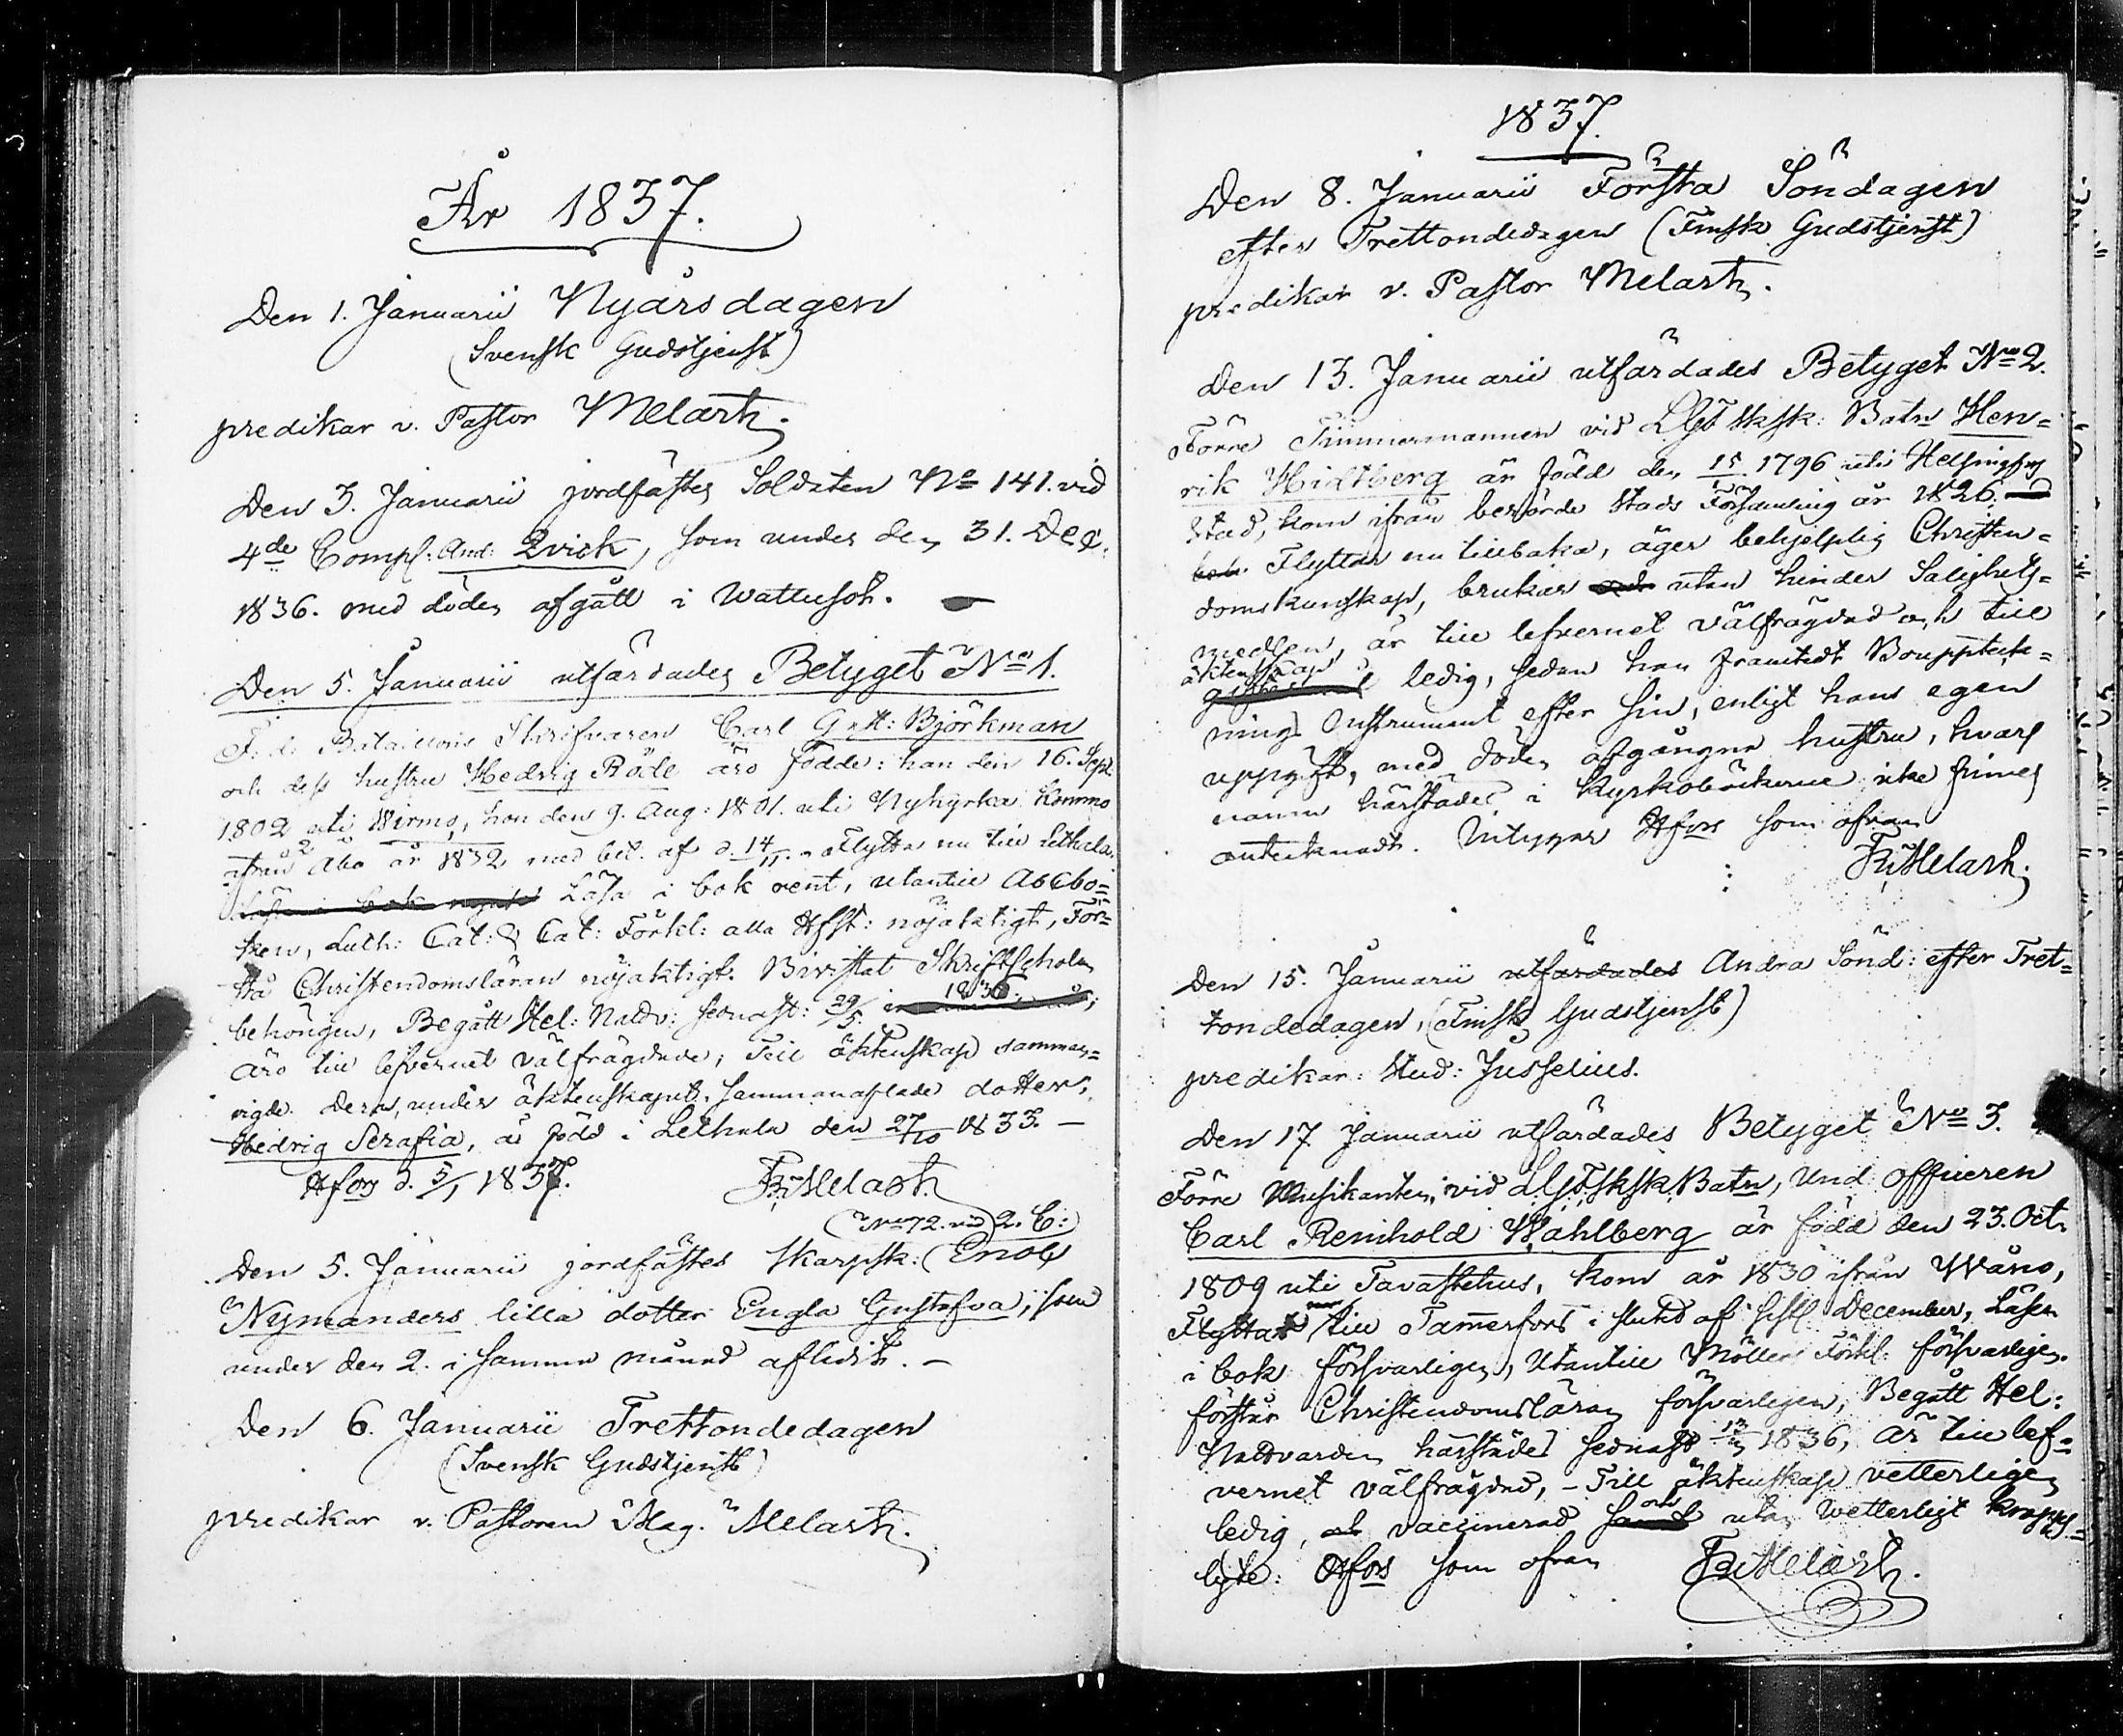 År 1837.
Den 1. Januarii Nyårsdagen
(Svensk Gudstjenst)
predikar v. Pastor Melart.
Den 3. Januarii jordfästes Soldaten No 141. vid
4de Comp: And: Qvick, som under den 31. Dec.
1836. med döden afgått i Wattusoh.
Den 5. Januarii utfärdades Betyget No 1.
F. d. Bataillons Skrifvaren Carl Gust: Björkman
och dess hustru Hedvig Röde äro födde: han den 16. Sept
1802 uti Wirmo, hon den 9. Aug: 1801. uti Nykyrka. Kommo
ifrån Åbo år 1832 med bet. af d. 14/11. Flytta nu till Lethala.
Läsa i bok rent, utantill Abcbo=
ken, Luth: Cat: & Cat: Förkl: alla Hfst: nöjaktigt, För=
stå Christendomsläran nöjaktigt. Bivistat Skriftskolan
behörigen, Begått Hel: Nattv: sednast: 29/5. 1836.
äro till lefvernet välfrägdade; Till äktenskap samman=
vigde. Deras, under äktenskapet, sammanaflade dotter,
Hedvig Serafia, är född i Lethala den 27/10 1833. –
Hfors d. 5/1 1837. Fr: Melart.
(No 72. vid 2. C:)
Den 5. Januarii jordfästes Skarpsk: Enok
Nymanders lilla dotter Engla Gustafva, som
under den 2. i samma månad aflidit. –
Den 6. Januarii Trettondedagen
(Svensk Gudstjenst)
predikar v. Pastoren Mag. Melart.
1837.
Den 8. Januarii Första Söndagen
efter Trettondedagen (Finsk Gudstjenst)
predikar v. Pastor Melart.
Den 13. Januarii utfärdades Betyget No 2.
Förre Timmermannen vid LGF Sksk: Batn Hen=
rik Hidtberg är född den 15/ 1796 uti Helsingfors
Stad, kom ifrån berörde Stads Församling år 1826.
Flyttar nu tillbaka, äger behjelplig Christen=
domskunskap, brukar utan hinder Salighets=
medlen, är till lefvernet välfrägdad och till
äktenskap ledig, sedan han framtedt Bouppteck=
nings Instrument efter sin, enligt hans egen
uppgift, med döden afgångna hustru, hvars
namn härstädes i Kyrkoböckerna icke finnes
antecknadt. Intygar Hfors som ofvan
Fr: Melart.
Den 15. Januarii utfärdades Andra Sönd: efter Tret=
tondedagen, (Finsk Gudstjenst)
predikar: Stud: Jusselius.
Den 17 Januarii utfärdades Betyget No 3.
Förre Musikanten vid LGF SkSk Batn, Und: officeren
Carl Reinhold Wahlberg är född den 23. Oct.
1809 uti Tavastehus, kom år 1830 ifrån Wåno,
Flyttar till Tamerfors i slutet af sistl December, Läser
i bok försvarligen, Utantill Möllers Förkl: försvarligen.
förstår Christendomsläran försvarligen, Begått Hel:
Nattvarden härstädes sednast 1836, är till lef=
vernet välfrägdad, – Till äktenskap vetterligen
ledig, vaccinerad och utan wetterligt kropps=
lyte: Hfors som ofvan Fr: Melart.